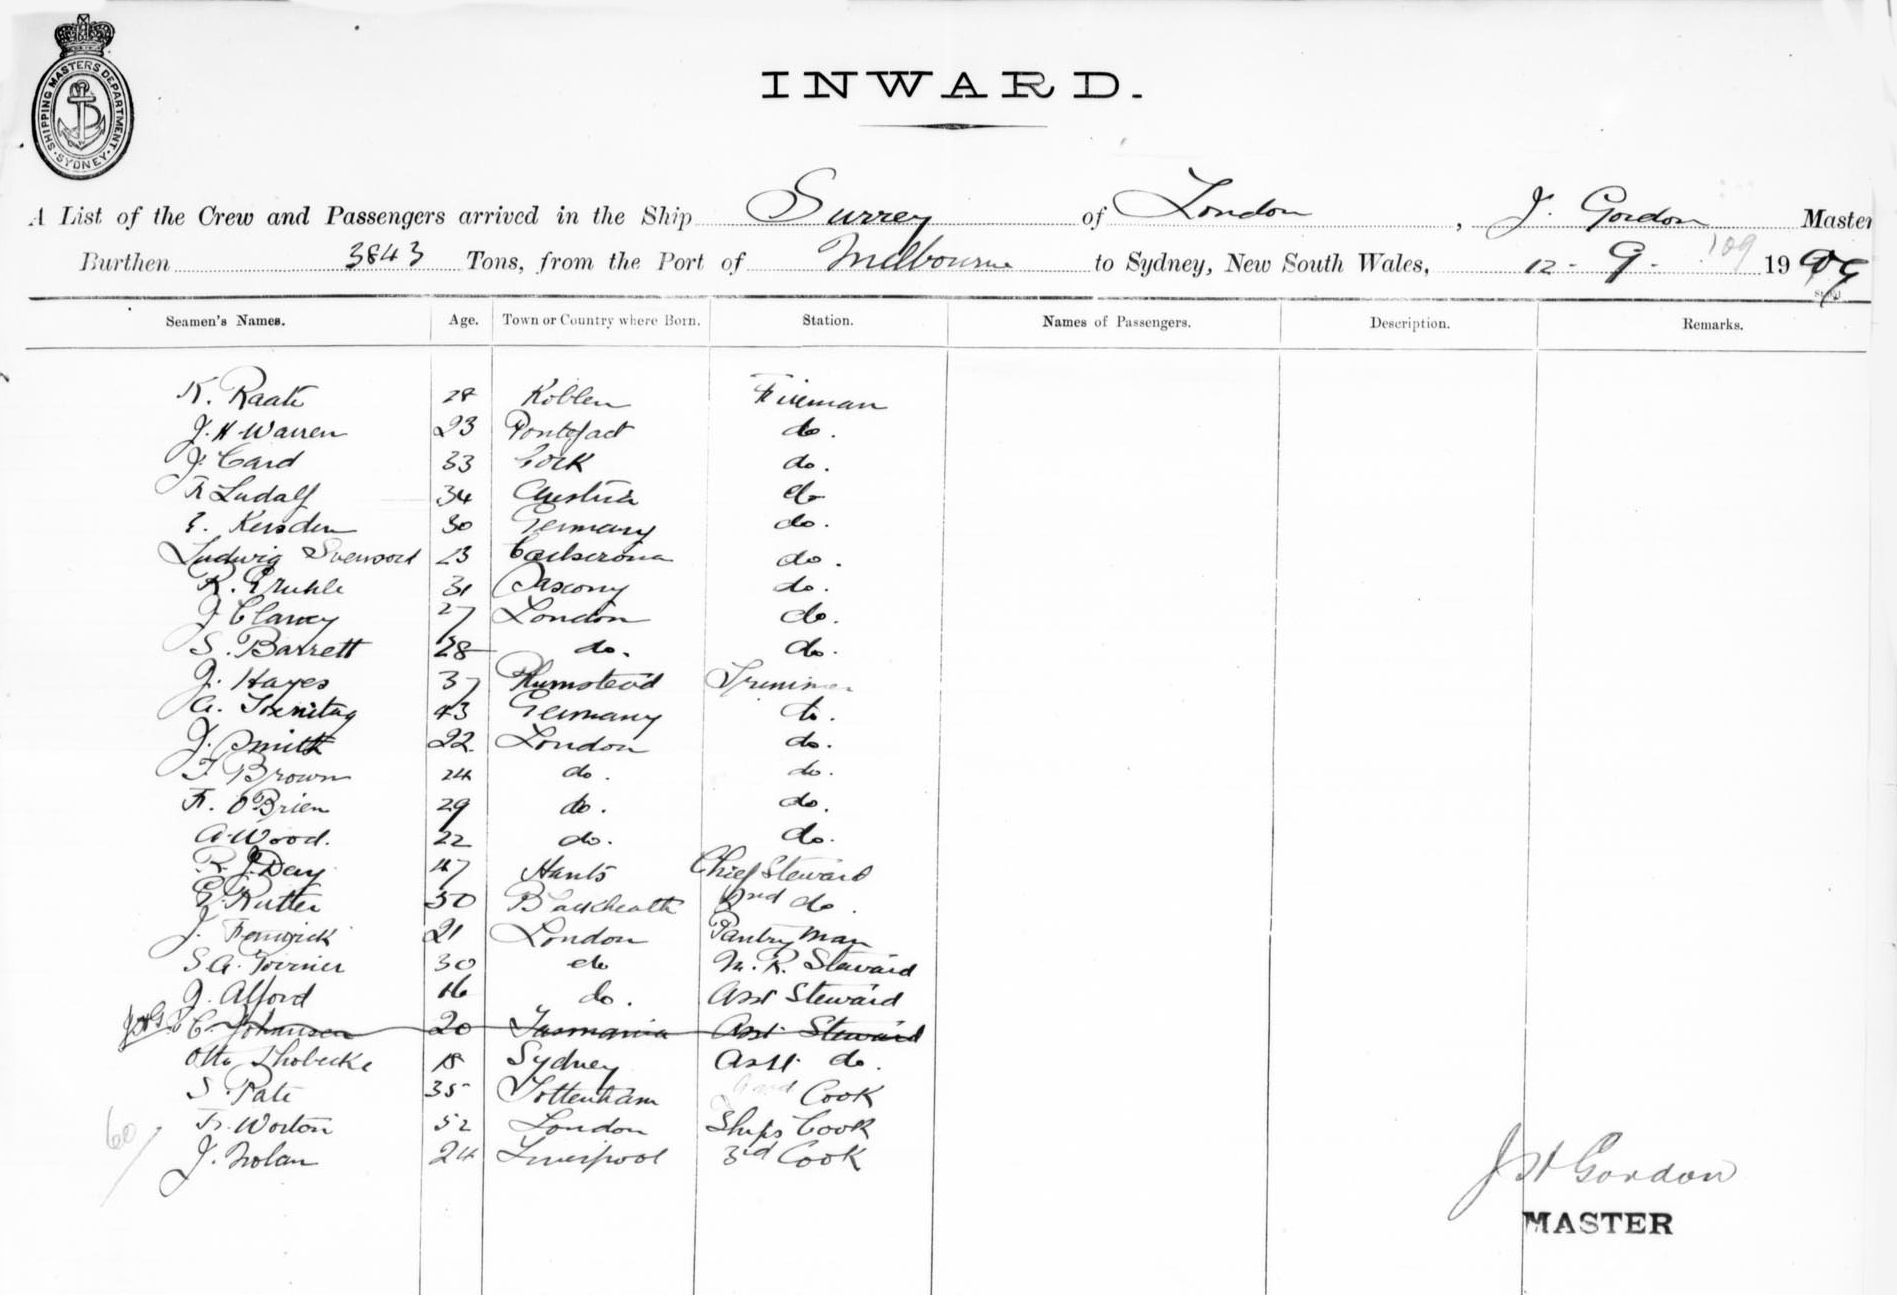 SHIPPING MASTERS DEPARTMENT
SYDNEY
INWARD.
A List of the Crew and Passengers arrived in the Ship Surrey of London, J. Gordon Master
Burthen 3843 Tons, from the Port of Melbourne to Sydney, New South Wales, 12 - 9 - 1909
Seamen's Names. Age. Town or Country where Born. Station. Names of Passengers. Description. Remarks.
K. Raate 28 Koblen Fireman
J. H. Warren 23 Pontefact do.
J. Card 33 Cork do.
F. Ludalf 34 Austria do
E. Kersden 30 Germany do.
Ludwig Svensson 23 Carlscrona do.
R. Gruhle 31 Saxony do.
J Clancy 27 London do.
S. Barrett 28 do. do.
J. Hayes 37 Plumstead Trimmer
A. 43 Germany do.
J. Smith 22 London do.
F Brown 24 do. do.
F. O'Brien 29 do. do.
A. Wood. 22 do. do.
R. J. Day 47 Hants Chief Steward
E. Rutter 30 Blackheath 2nd do.
J. Fenwick 21 London Pantry Man
S. A. 30 do M. R. Steward
J. Alford 16 do. Asst Steward
C. Johansen 20 Tasmania Asst Steward
Otto Thobecke 18 Sydney Asst. do.
S. Pate 35 Tottenham Cook
F. Worton 52 London Ships Cook
60
J. Nolan 24 Liverpool 3rd Cook
J H Gordon
MASTER